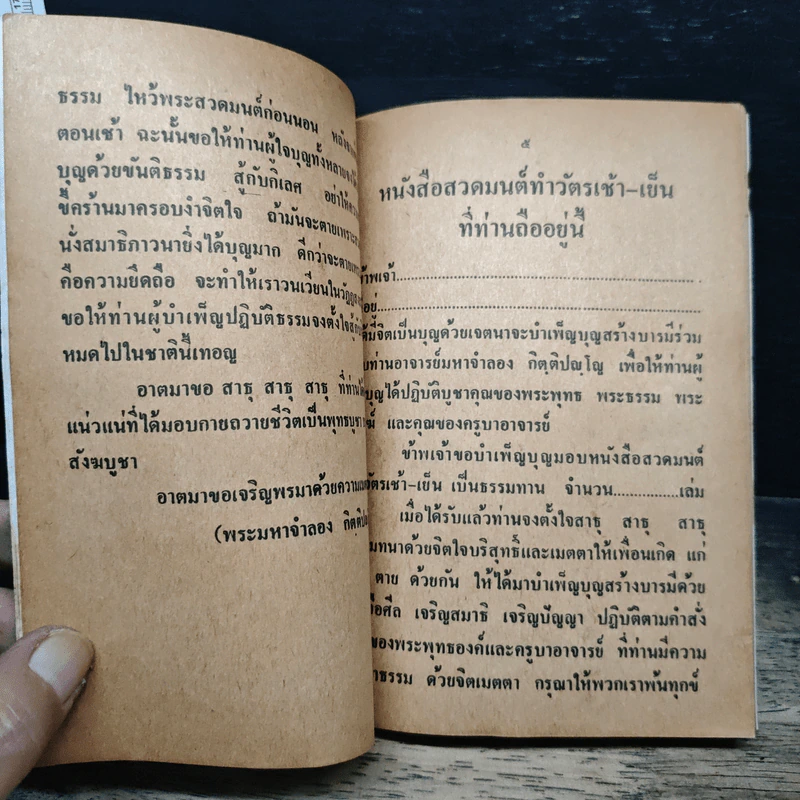 ธรรม ไหว้พระสวดมนต์ก่อนนอน
ตอนเช้า ฉะนั้นขอให้ท่านผู้ใจบุญทั้งหลาย
บุญด้วยขันติธรรม สู้กับกิเลศ อย่าให้
ขี้คร้านมาครอบงำจิตใจ ถ้ามันจะตายเพราะ
นั่งสมาธิภาวนายิ่งได้บุญมาก ดีกว่าจะตาย
คือความยึดถือ จะทำให้เราวนเวียนใน
ขอให้ท่านผู้บำเพ็ญปฏิบัติธรรมจงตั้งใจ
หมดไปในชาตินี้เทอญ
อาตมาขอ สาธุ สาธุ สาธุ ที่ท่าน
แน่วแน่ที่ได้มอบกายถวายชีวิตเป็นพุทธบูชา
สังฆบูชา
อาตมาขอเจริญพรมาด้วยความ
(พระมหาจำลอง
๕
หนังสือสวดมนต์ทำวัตรเช้า–เย็น
ที่ท่านถืออยู่นี้
..........
..........
มีจิตเป็นบุญด้วยเจตนาจะบำเพ็ญบุญสร้างบารมีร่วม
ท่านอาจารย์มหาจำลอง กิตฺติปญฺโญ เพื่อให้ท่านผู้
บุญได้ปฏิบัติบูชาคุณของพระพุทธ พระธรรม พระ
และคุณของครูบาอาจารย์
ข้าพเจ้าขอบำเพ็ญบุญมอบหนังสือสวดมนต์
เช้า–เย็น เป็นธรรมทาน จำนวน...............เล่ม
เมื่อได้รับแล้วท่านจงตั้งใจสาธุ สาธุ สาธุ
ด้วยจิตใจบริสุทธิ์และเมตตาให้เพื่อนเกิด แก่
ตาย ด้วยกัน ให้ได้มาบำเพ็ญบุญสร้างบารมีด้วย
ศีล เจริญสมาธิ เจริญปัญญา ปฏิบัติตามคำสั่ง
ของพระพุทธองค์และครูบาอาจารย์ ที่ท่านมีความ
ธรรม ด้วยจิตเมตตา กรุณาให้พวกเราพ้นทุกข์